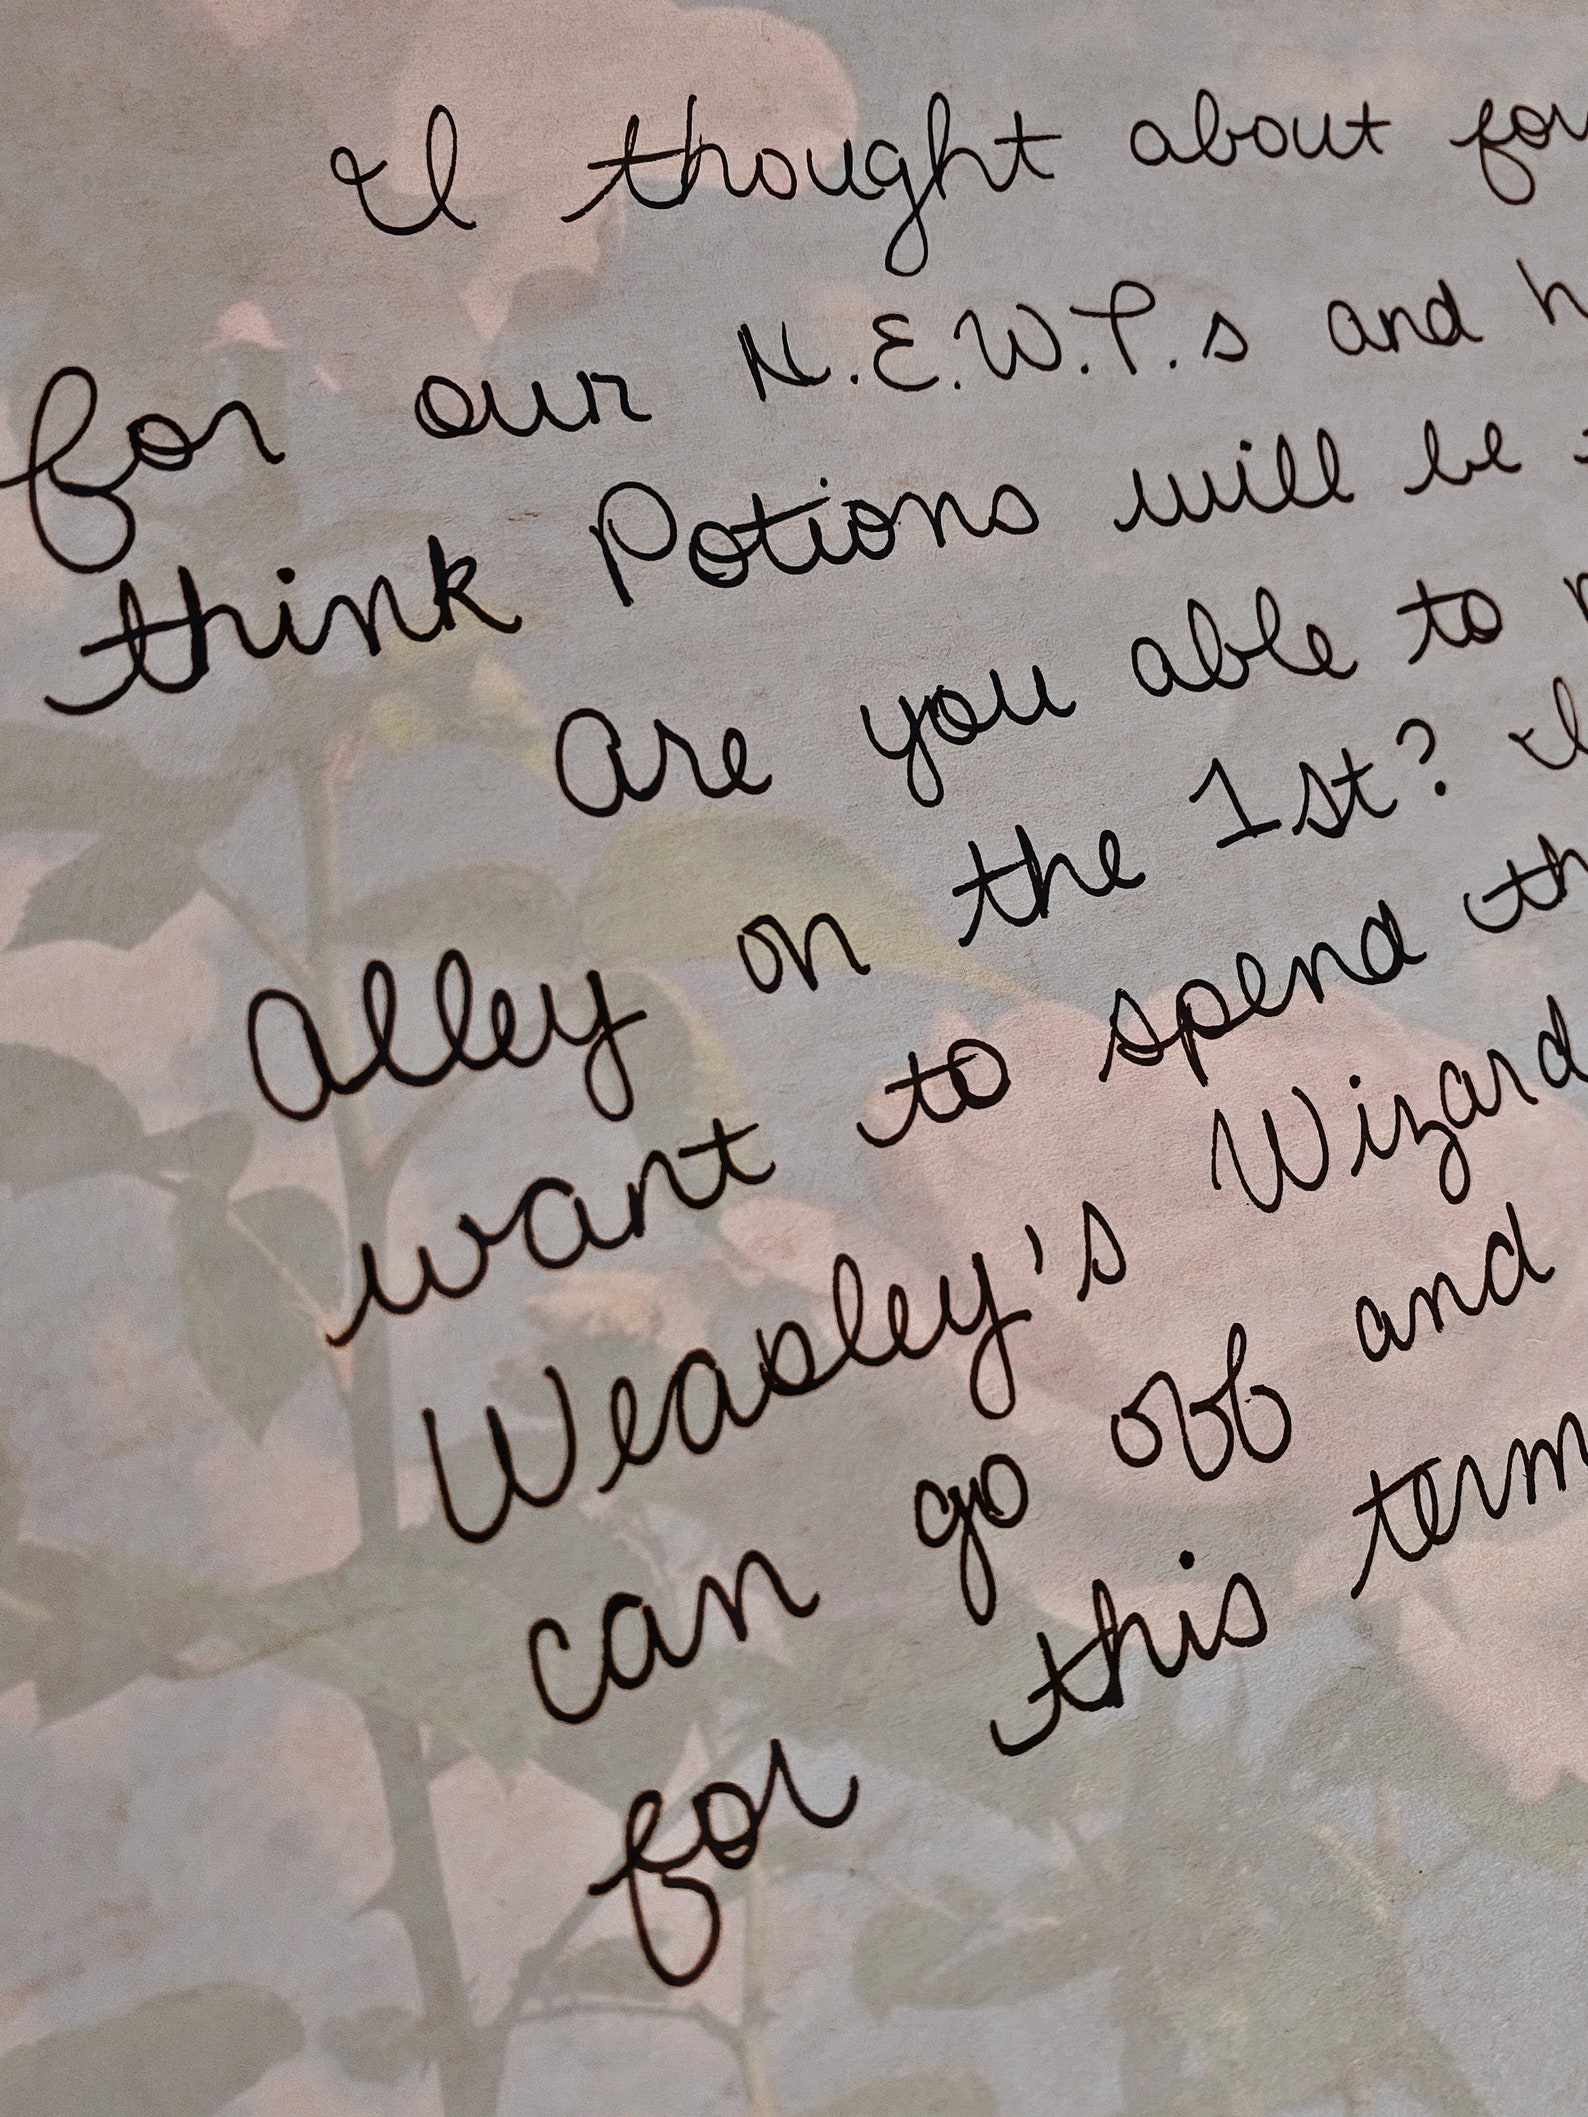 I thought about for
for our N.E.W.T.s and h
think Potions will be
Are you able to
Alley on the 1st? I
want to spend th
Weasley's Wizard
can go off and
for this term